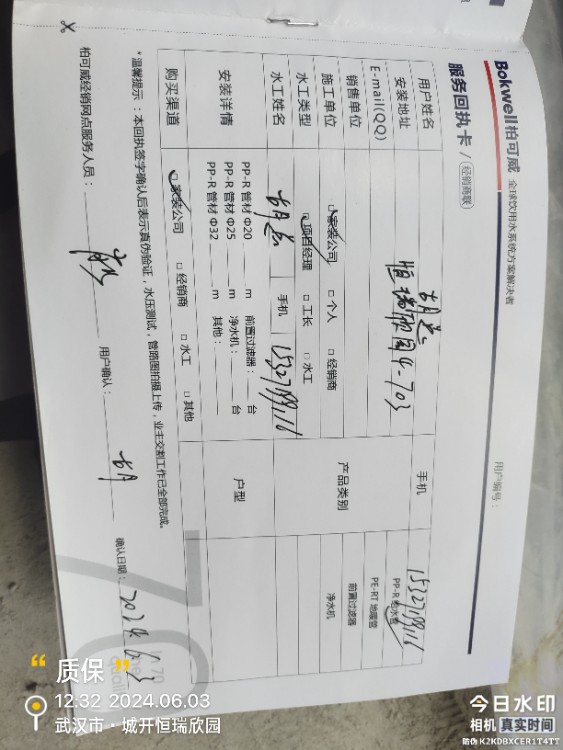 Bokwell柏可威 全球饮用水系统方案解决者
服务回执卡/(经销商联)
用户编号：
用户姓名
手机
安装地址 恒瑞欣园4-703
PP-R 给水管
E-mail(QQ)
PE-RT 地暖管
销售单位
产品类别
前置过滤器
施工单位 家装公司 □ 个人 □ 经销商
净水机
水工类型 项目经理 □ 工长 □ 水工
水工姓名
手机
安装详情
PP-R 管材 Φ20 m 前置过滤器： 台
PP-R 管材 Φ25 m 净水机： 台
PP-R 管材 Φ32 m 其他：
户型
购买渠道 家装公司 □ 经销商 □ 水工 □ 其他
*温馨提示：本回执签字确认后表示真伪验证，水压测试，管路图拍摄上传，业主交割工作已全部完成。
柏可威经销网点服务人员：
用户确认： 胡
确认日期：2024.6.3
质保
12:32 2024.06.03
武汉市·城开恒瑞欣园
今日水印
相机 真实时间
防伪 K2KDBXCER1T4TT